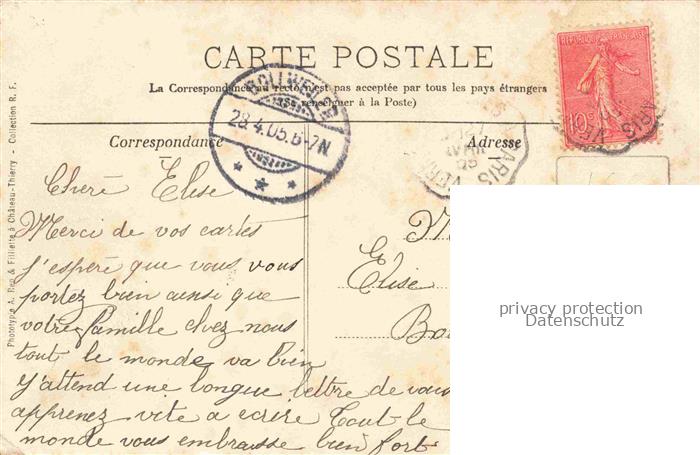 CARTE POSTALE
La Correspondance au recto n'est pas acceptée par tous les pays étrangers
(Se renseigner à la Poste)
Correspondance
Adresse
REPUBLIQUE FRANÇAISE
10c
BOLLWEILER
28.4.05.6-7N
PARIS
Phototypie A. Rep & Filliette à Château-Thierry - Collection R. F.
Cherè Elise
Merci de vos cartes
j'esperè que vous vous
portez bien ainsi que
votre famille chez nous
tout le monde va bien
J'attend une longue lettre de vous
apprenez vite a ecrire Tout le
monde vous embrasse bien fort
Elise
privacy protection
Datenschutz